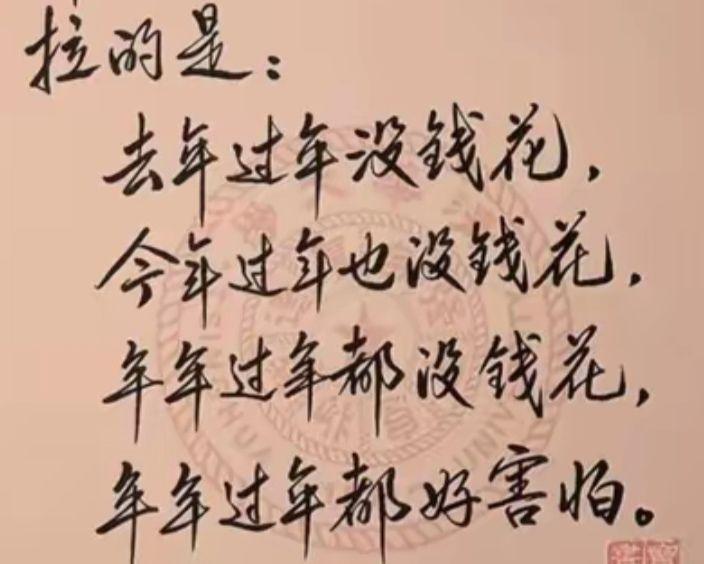 拉的是：
去年过年没钱花，
今年过年也没钱花，
年年过年都没钱花，
年年过年都好害怕。